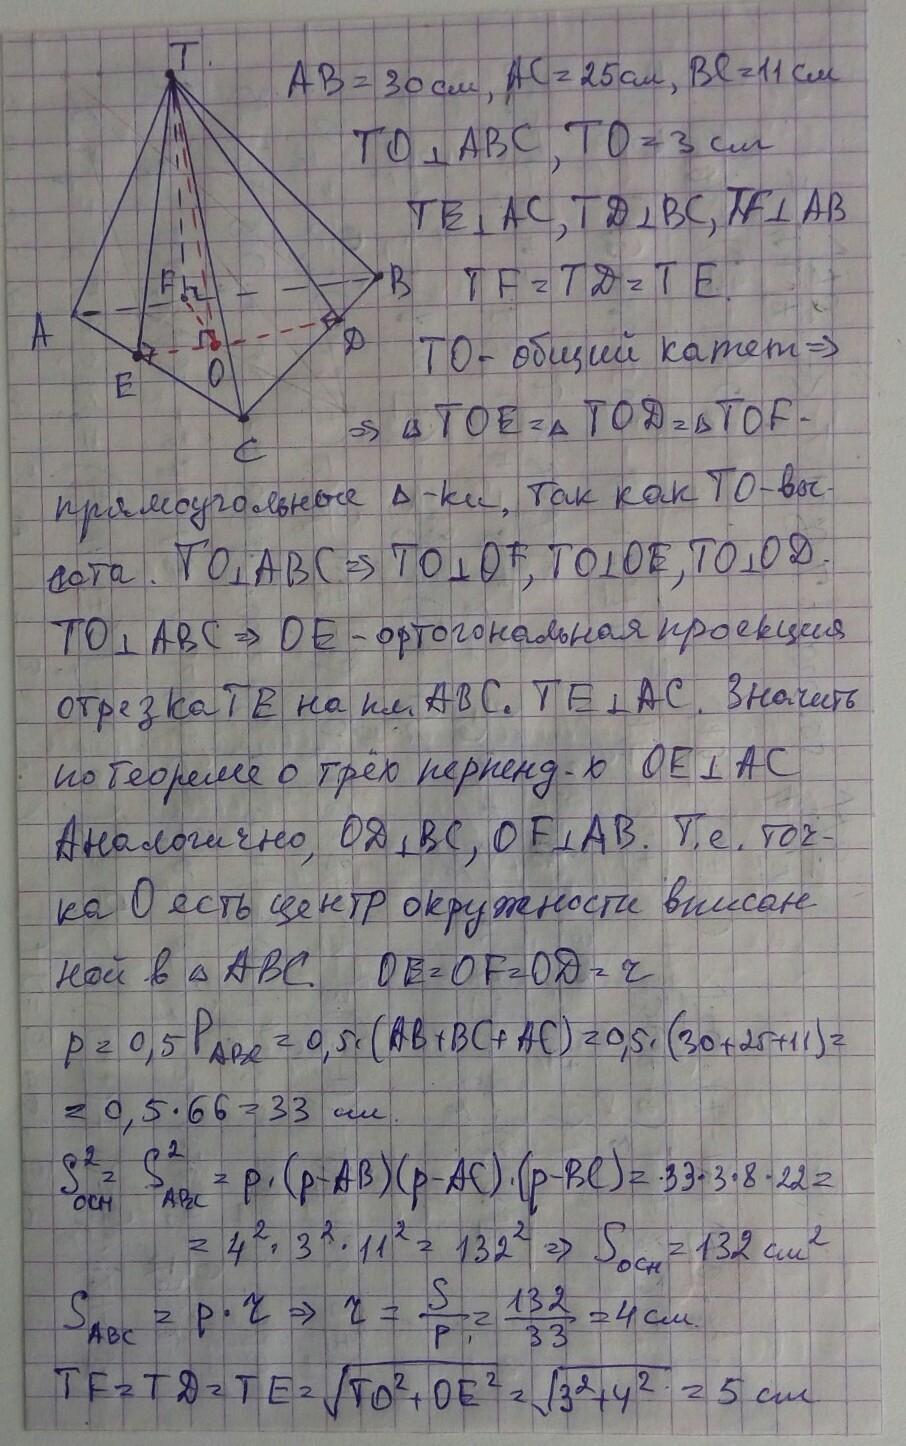 T
AB = 30 см, AC = 25 см, BC = 11 см
TO⊥ABC, TO = 3 см
TE⊥AC, TD⊥BC, TF⊥AB
F B TF = TD = TE.
A D TO - общий катет ⇒
E O
C ⇒ △TOE = △TOD = △TOF -
прямоугольные △-ки, так как TO - вы-
сота. TO⊥ABC ⇒ TO⊥OF, TO⊥OE, TO⊥OD.
TO⊥ABC ⇒ OE - ортогональная проекция
отрезка TE на пл. ABC. TE⊥AC. Значить
по теореме о трёх перпенд-х OE⊥AC
Аналогично, OD⊥BC, OF⊥AB. Т.е. точ-
ка O есть центр окружности вписан
ной в △ABC. OE = OF = OD = r
p = 0,5 P_ABC = 0,5·(AB+BC+AC) = 0,5·(30+25+11) =
= 0,5·66 = 33 см.
S²_осн = S²_ABC = p·(p-AB)(p-AC)·(p-BC) = 33·3·8·22 =
= 4²·3²·11² = 132² ⇒ S_осн = 132 см²
S_ABC = p·r ⇒ r = S/p = 132/33 = 4 см.
TF = TD = TE = √(TO²+OE²) = √(3²+4²) = 5 см